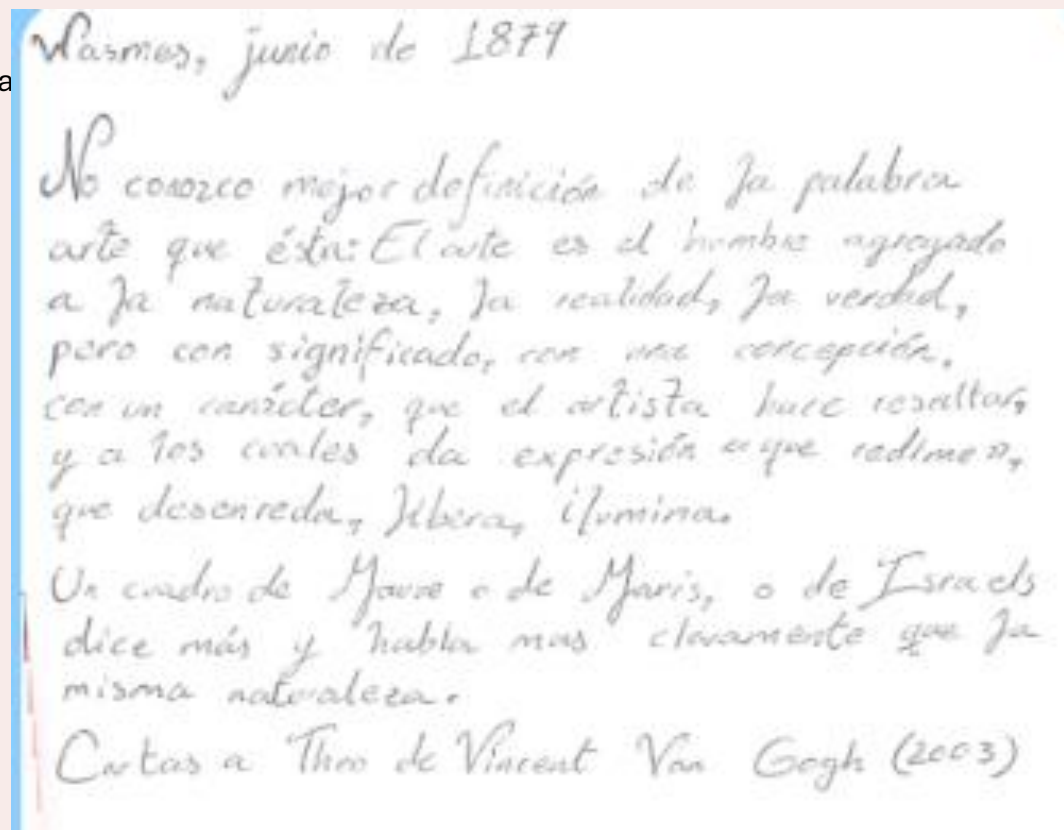 a
Wasmes, junio de 1879
No conozco mejor definición de la palabra
arte que ésta: El arte es el hombre agregado
a la naturaleza, la realidad, la verdad,
pero con significado, con una concepción,
con un carácter, que el artista hace resaltar,
y a los cuales da expresión «que redime»,
que desenreda, libera, ilumina.
Un cuadro de Mauve o de Maris, o de Israels
dice más y habla mas claramente que la
misma naturaleza.
Cartas a Theo de Vincent Van Gogh (2003)